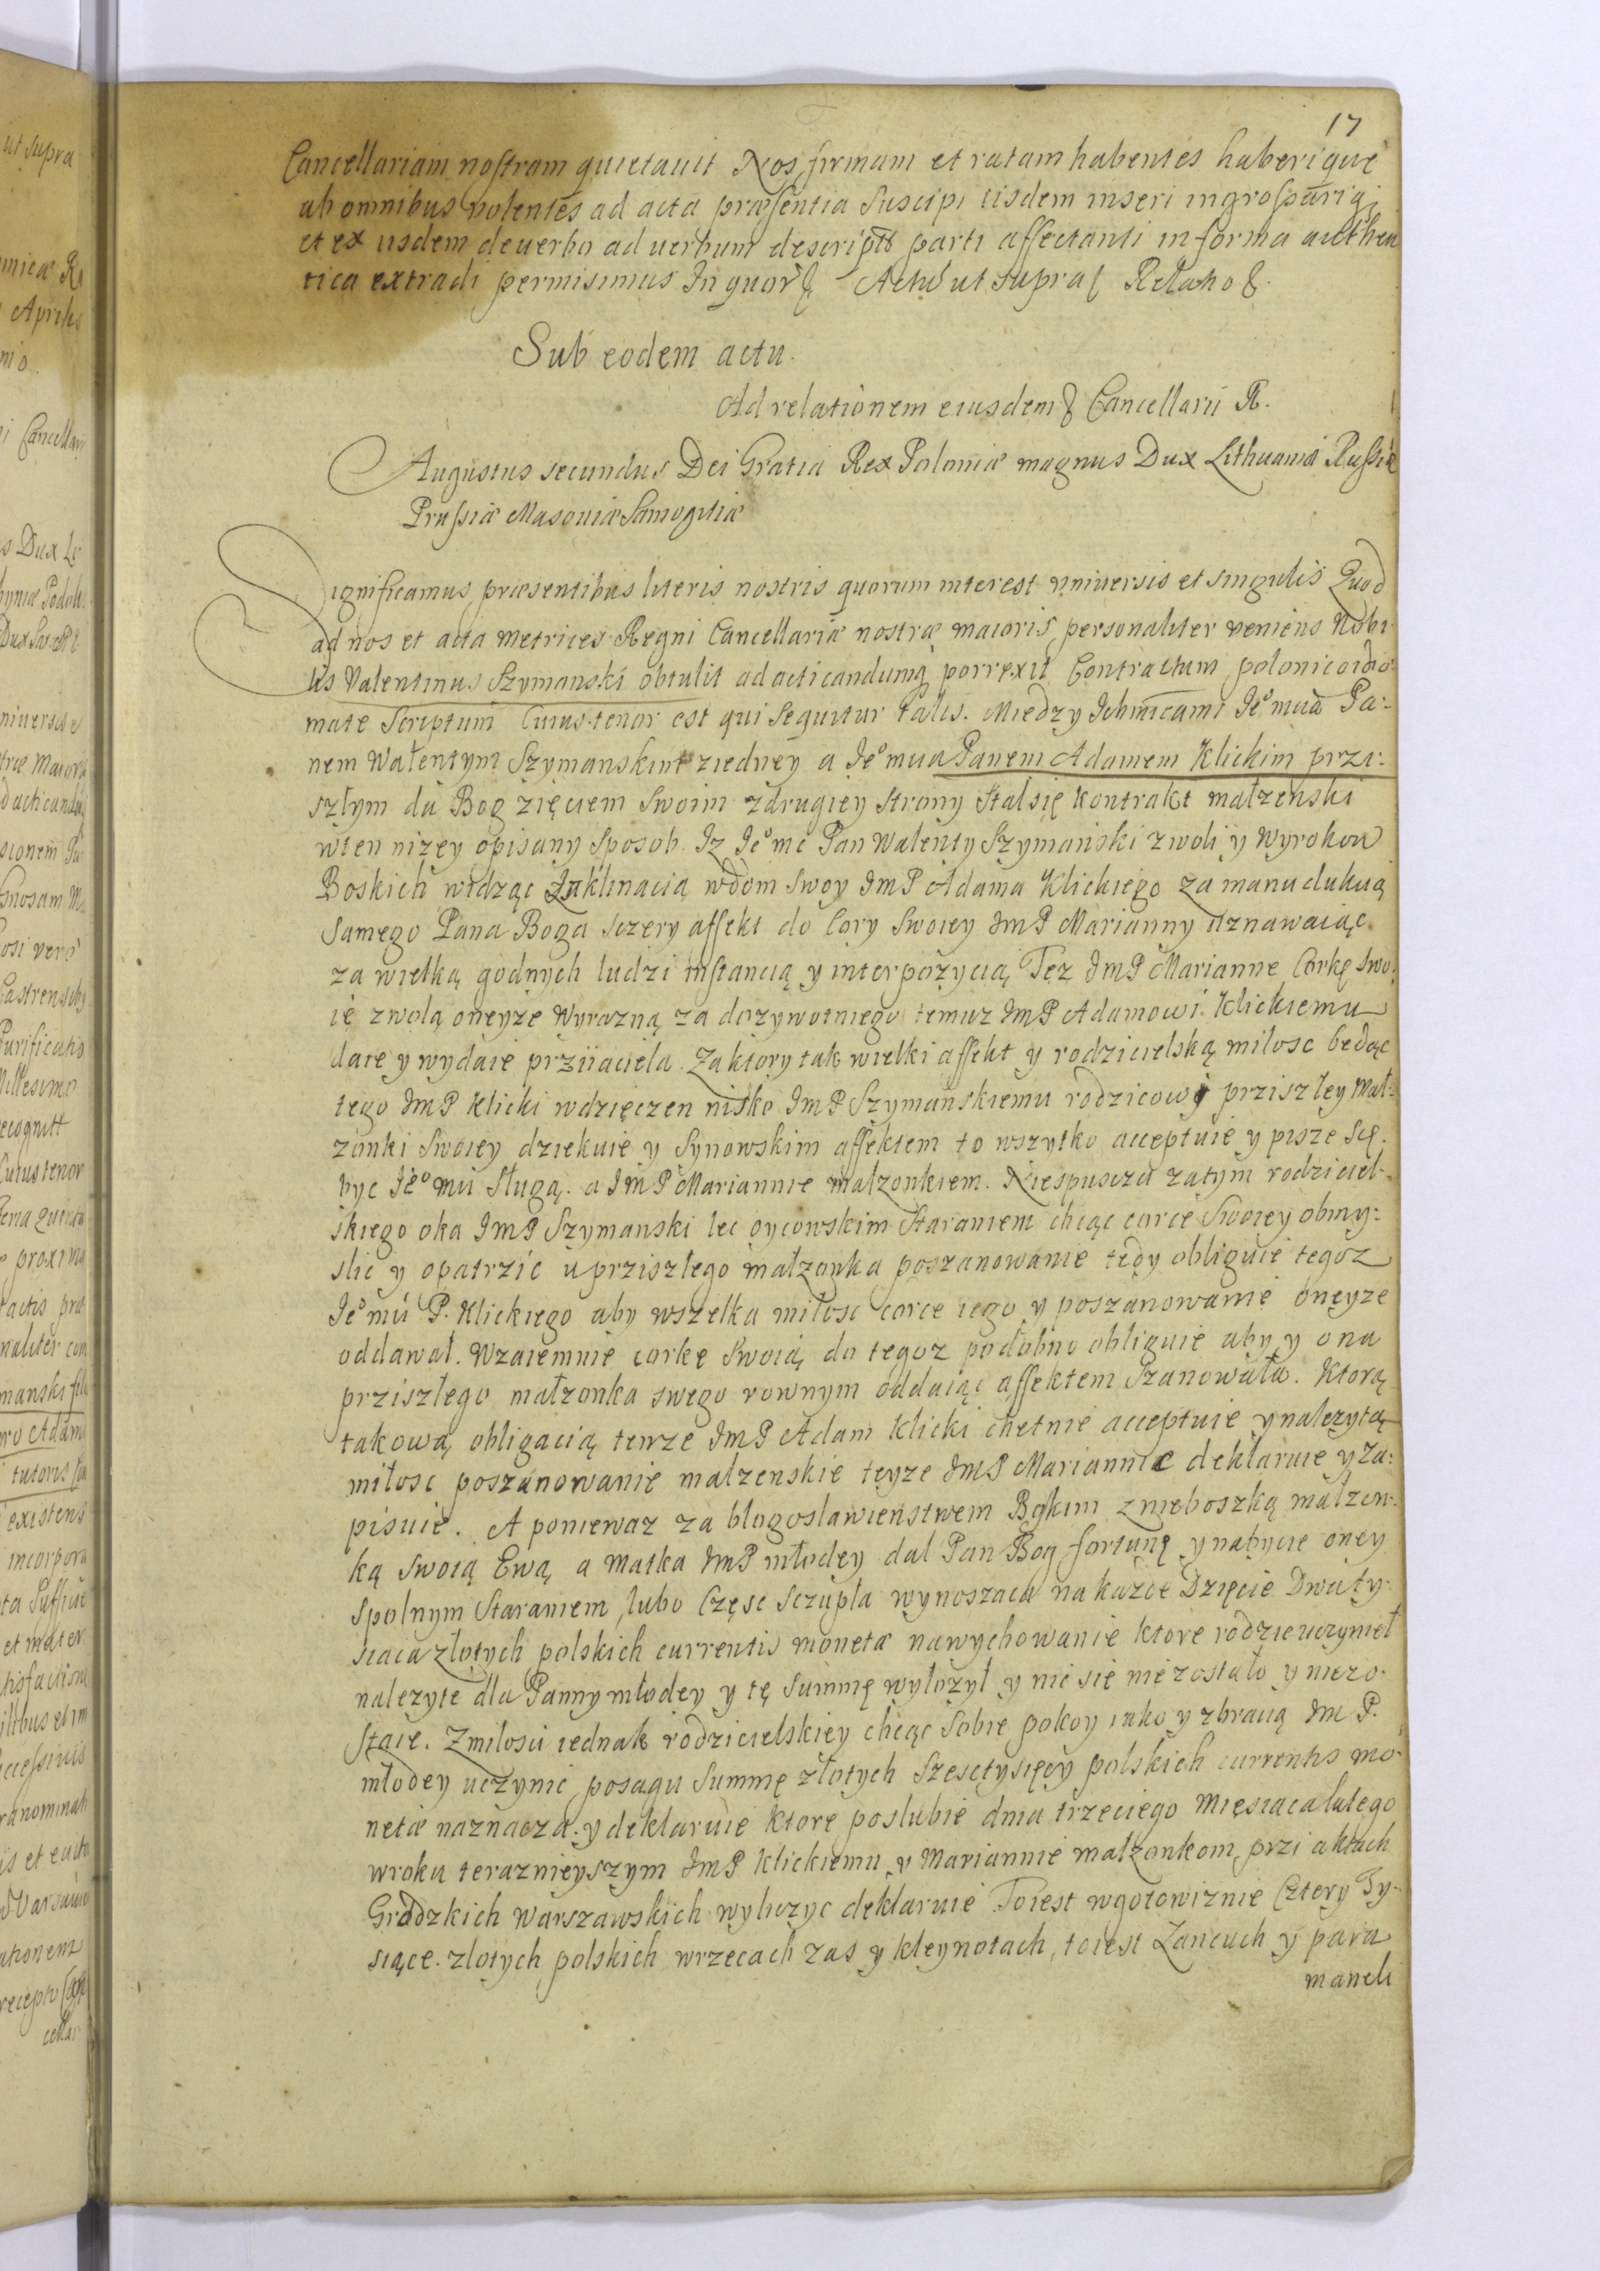 17
Cancellariam nostram quietauit Nos firmum et ratam habentes haberique
ab omnibus volentes ad acta præsentia Suscipi iisdem inseri ingrossariq;
et ex iisdem de uerbo ad uerbum descriptũ parti affectanti in forma authen
tica extradi permisimus In quorũ Actũ ut supra Relatio
Sub eodem actu.
Ad relationem eiusdem Cancellarii R.
Augustus secundus Dei Gratia Rex Poloniæ magnus Dux Lithuaniæ Russiæ
Prussiæ Masoniæ Samogitiæ
Significamus præsentibus literis nostris quorum interest vniuersis et singulis Quod
ad nos et acta metrices Regni Cancellariæ nostræ maioris personaliter veniens Nobi
lis Valentinus Szymanski obtulit ad acticandumq porrexit Contractum polonico idio
mate Scriptum Cuius tenor est qui Sequitur talis. Miedzy Ichmciami Ieo mcią Pa:
nem Walentym Szymanskim ziedney a Ieo mcia Panem Adamem Klickim przi:
szłym da Bog zięciem Swoim zdrugiey Strony Stal się kontrakt małzenski
wten nizey opisany Sposob. Iz Ieo mc Pan Walenty Szymański zwoli y Wyrokow
Boskich widząc Inklinacią wdom swoy ImP Adama Klickiego za manudukcią
Samego Pana Boga sczery affekt do Cory Swoiey ImP Marianny uznawaiąc
za wielką godnych ludzi instancią y interpozycią Tez ImP Marianne Corkę Swo
ię zwolą oneyze Wyrazną za dozywotniego temuz ImP Adamowi Klickiemu
daie y wydaie prziiaciela. Za ktory tak wielki affekt y rodzicielską milosc bedąc
tego ImP Klicki wdzięczen nisko ImP Szymanskiemu rodzicowi prziszłey Mał:
zonki Swoiey dziekuie y Synowskim affektem to wszytko acceptuie y pisze Się
byc Ieo mci Sługą. a ImP Mariannie małzonkiem. Niespuscza zatym rodziciel:
skiego oka ImP Szymanski lec oycowskim Staraniem chcąc corce Swoiey obmy:
slic y opatrzić u prziszłego małzonka poszanowanie tedy obliguie tegoz
Ieo mci P. Klickiego aby wszelka miłosc corce iego y poszanowanie oneyze
oddawał. Wzaiemnie corkę Swoią do tegoz podobno obliguie aby y ona
prziszłego małzonka swego rownym oddaiąc affektem Szanowała. Ktorą
takową obligacią tenze ImP Adam Klicki chetnie acceptuie y nalezytą
miłosc poszanowanie malzenskie teyze ImP Mariannie deklaruie y za:
pisuie. A poniewaz za blogosławieństwem Bskim znieboszką małzon:
ką swoią Ewą a matka ImP młodey dal Pan Bog fortunę y nabycie oney
spolnym Staraniem, lubo Częsc Sczupla wynosząca na kazde Dzięcie Dwa ty:
siaca złotych polskich currentis monetæ nawychowanie ktore rodzic uczynieł
nalezyte dla Panny młodey y tę Summę wyłozył y nic się nie zostało y niezo:
staie. Zmilosci iednak rodzicielskiey chcąc Sobie pokoy iako y zbracią Im P.
młodey uczynic posagu Summę złotych Szesctysięcy polskich currentis mo:
netæ naznacza y deklaruie ktore poslubie dnia trzeciego Miesiąca lutego
wroku teraznieyszym ImP Klickiemu y Mariannie małzonkom, przi aktach
Grodzkich Warszawskich wyliczyc deklaruie Toiest wgotowiznie Cztery Ty:
siące. zlotych polskich wrzecach zas y kleynotach, toiest Łancuch y para
maneli